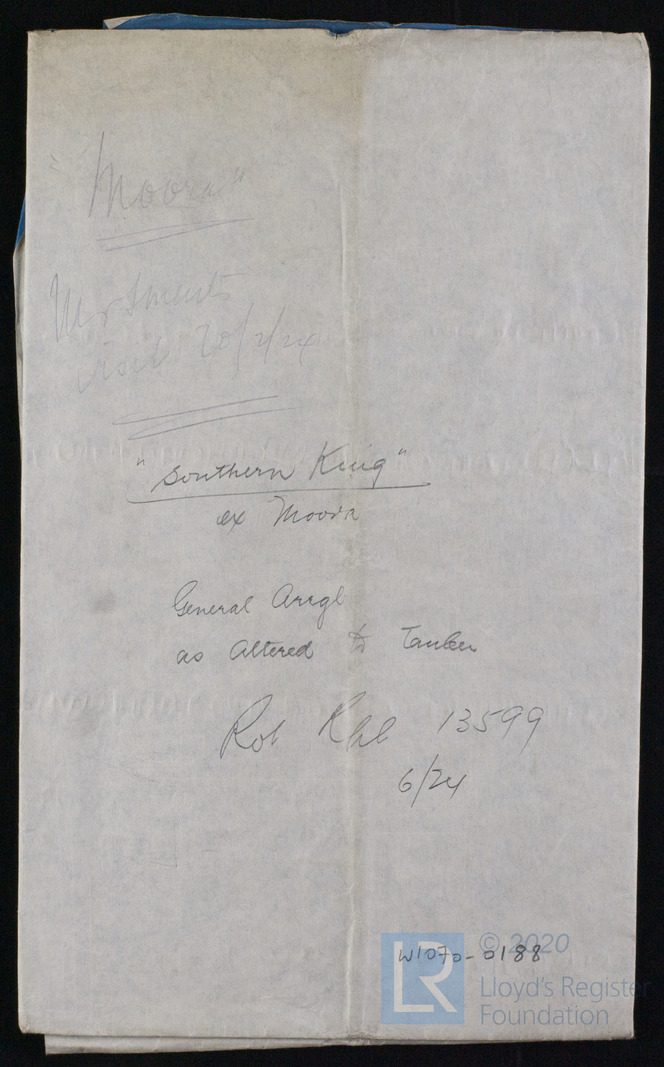 "Moora"
visit 20/2/24
"Southern King"
ex Moora
General Arrgt
as Altered to Tanker
Rot Rpt 13599
6/24
W1070-0188
© 2020
LR
Lloyd's Register
Foundation